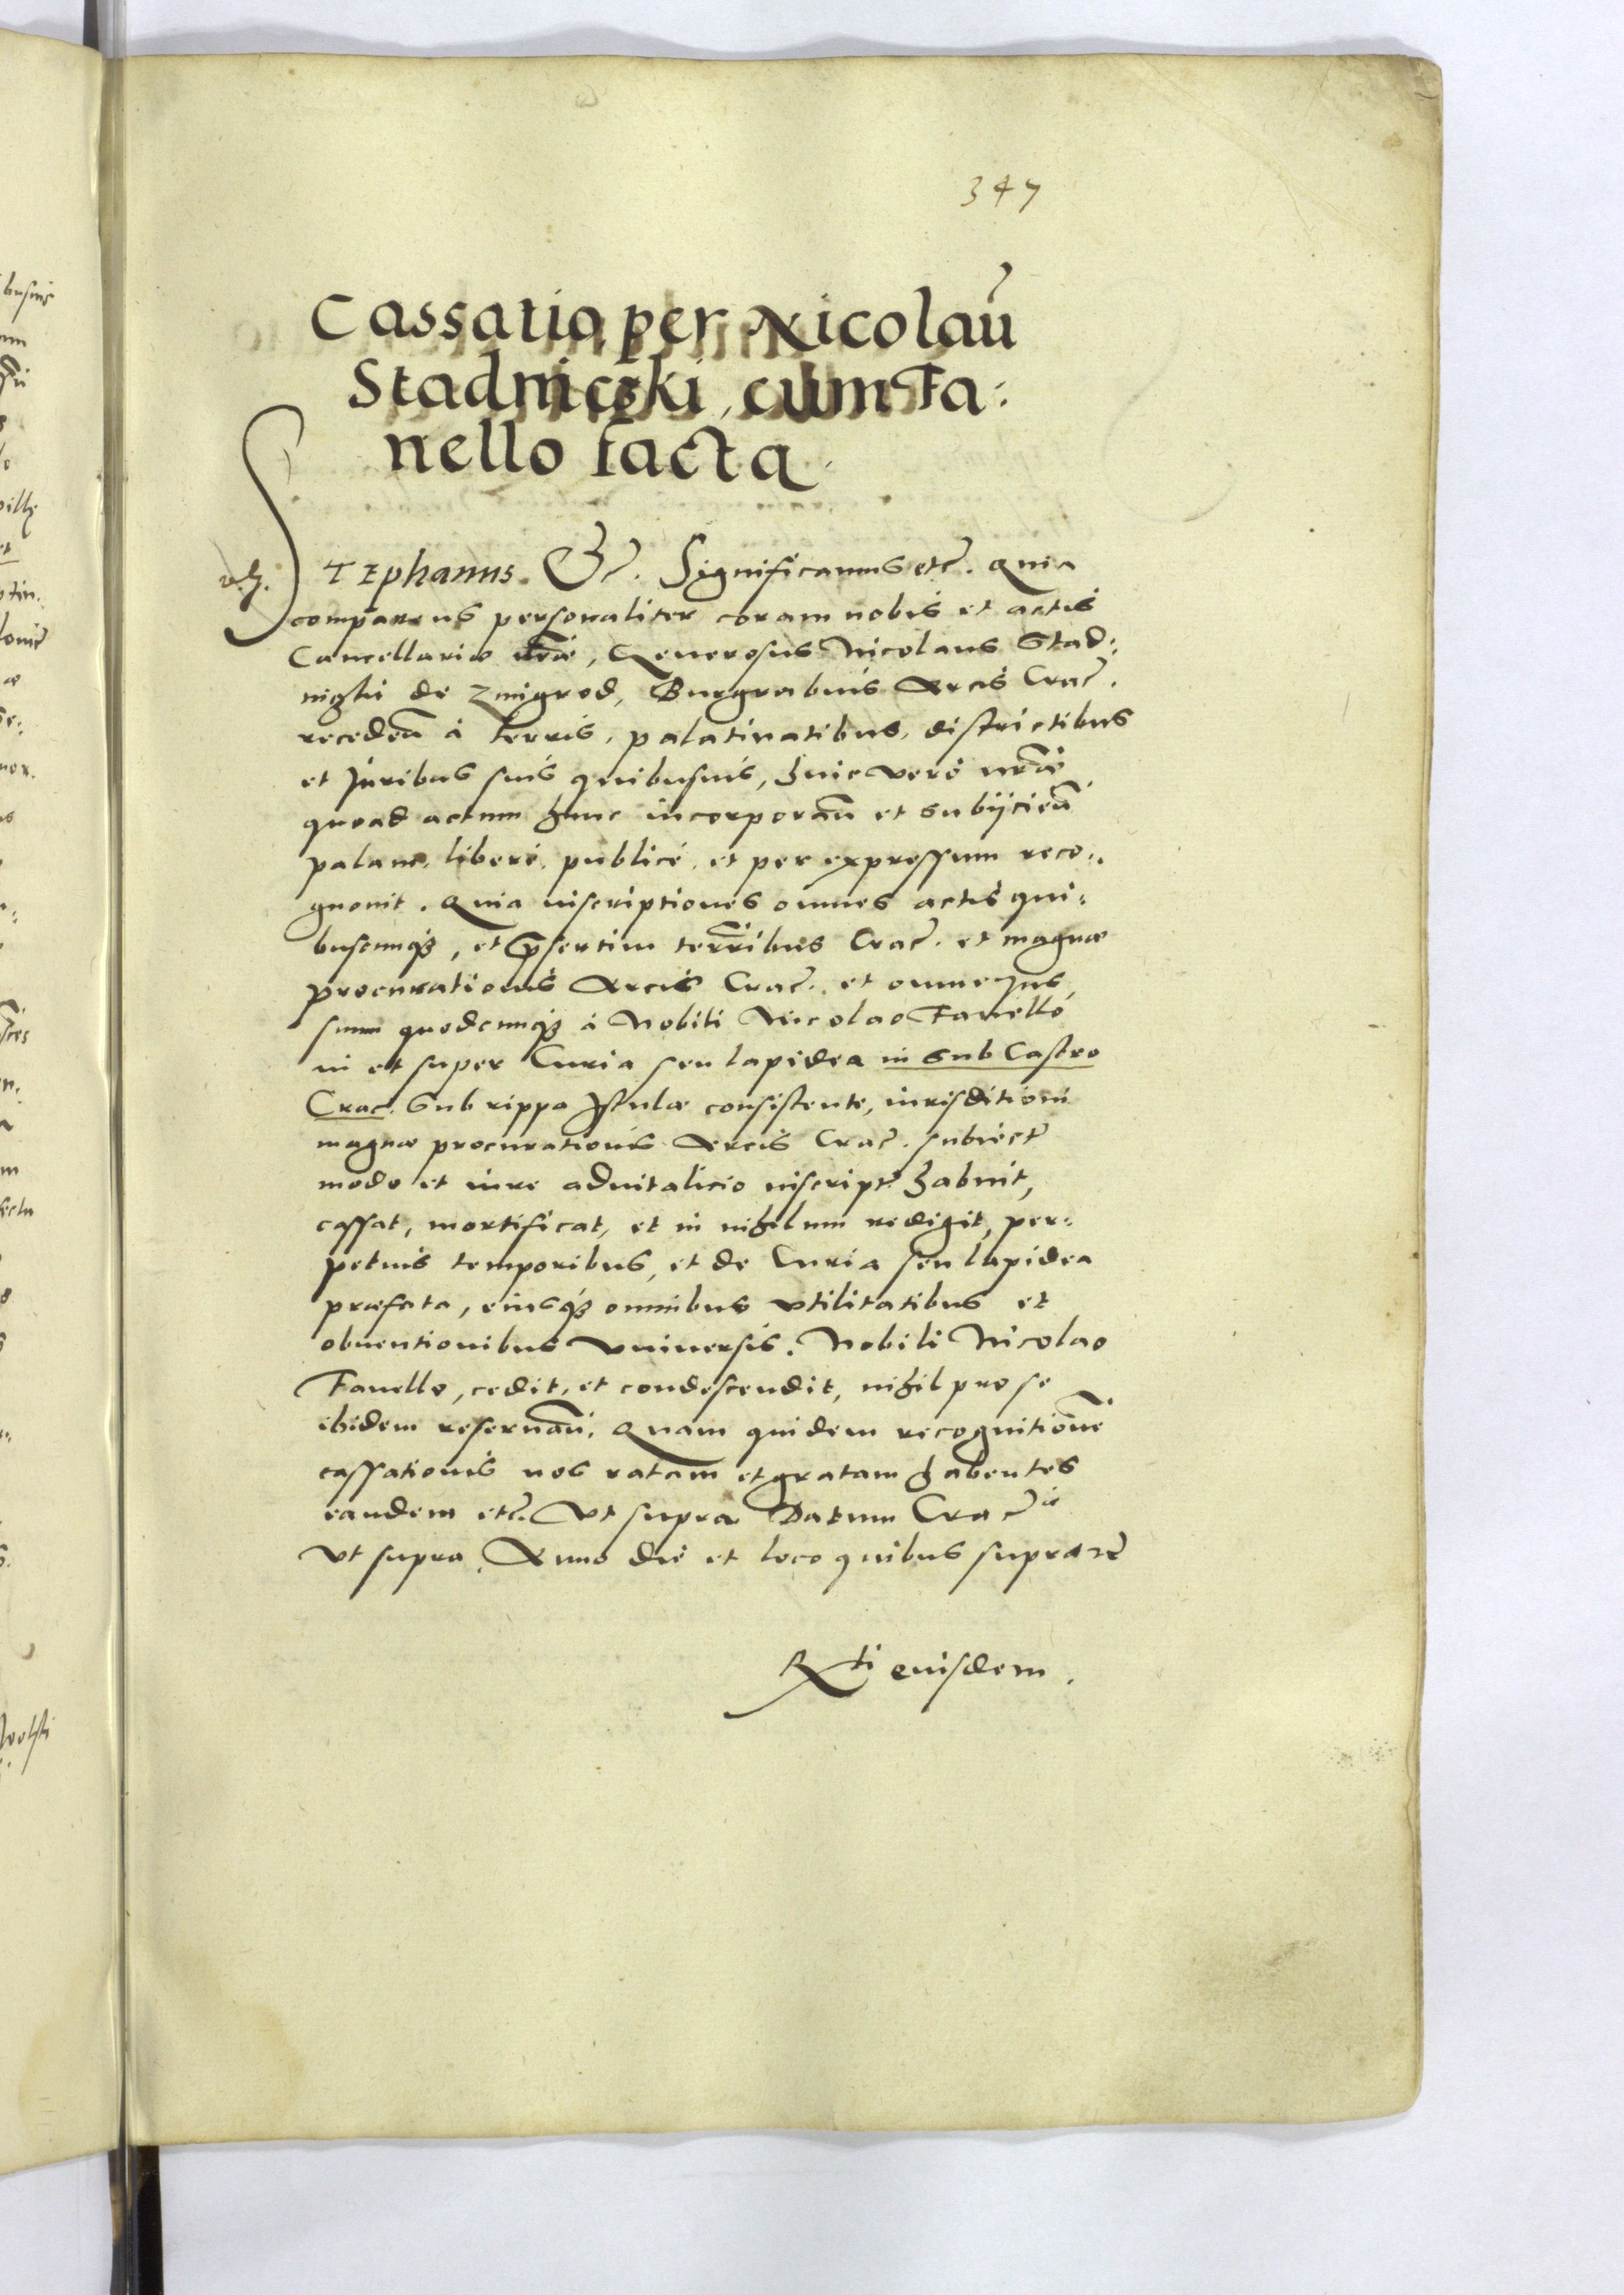 347
Cassatio per Nicolaū
Stadniczki, cum Fa:
nello facta.
STEphanus. Etc. Significamus etc. Quia
comparens personaliter coram nobis et actis
Cancellariæ nr̃æ, Generosus Nicolaus Stad:
nizki de Zmigrod, Burgrabius Arcis Crac.
receden̄ à terris, palatinatibus, districtibus
et Juribus suis quibusuis, huic vero nr̃æ
quoad actum hunc incorporan̄ et subijcien̄
palam, liberè, publicè, et per expressum reco:
gnouit. Quia inscriptiones omnes actis qui:
buscunqȝ, et p̃sertim terr̃ibus Crac. et magnæ
procurationis Arcis Crac. et omne Jus
suum quodcunqȝ à Nobili Nicolao Fanello
in et super Curia seu lapidea in sub Castro
Crac. sub rippa Istulæ consistente, iurisditioni
magnæ procurationis Arcis Crac. subiect
modo et iure aduitalicio inscript habuit,
cassat, mortificat, et in nihilum redigit, per:
petuis temporibus, et de Curia seu lapidea
præfata, eiusqȝ omnibus vtilitatibus et
obuentionibus vniuersis. Nobili Nicolao
Fanello, cedit, et condescendit, nihil pro se
ibidem reseruan̄. Quam quidem recognitionē
cassationis nos ratam et gratam habentes
eandem etc. Vt supra Datum Crac
Vt supra. Anno die et loco quibus supra
Rti eiusdem.